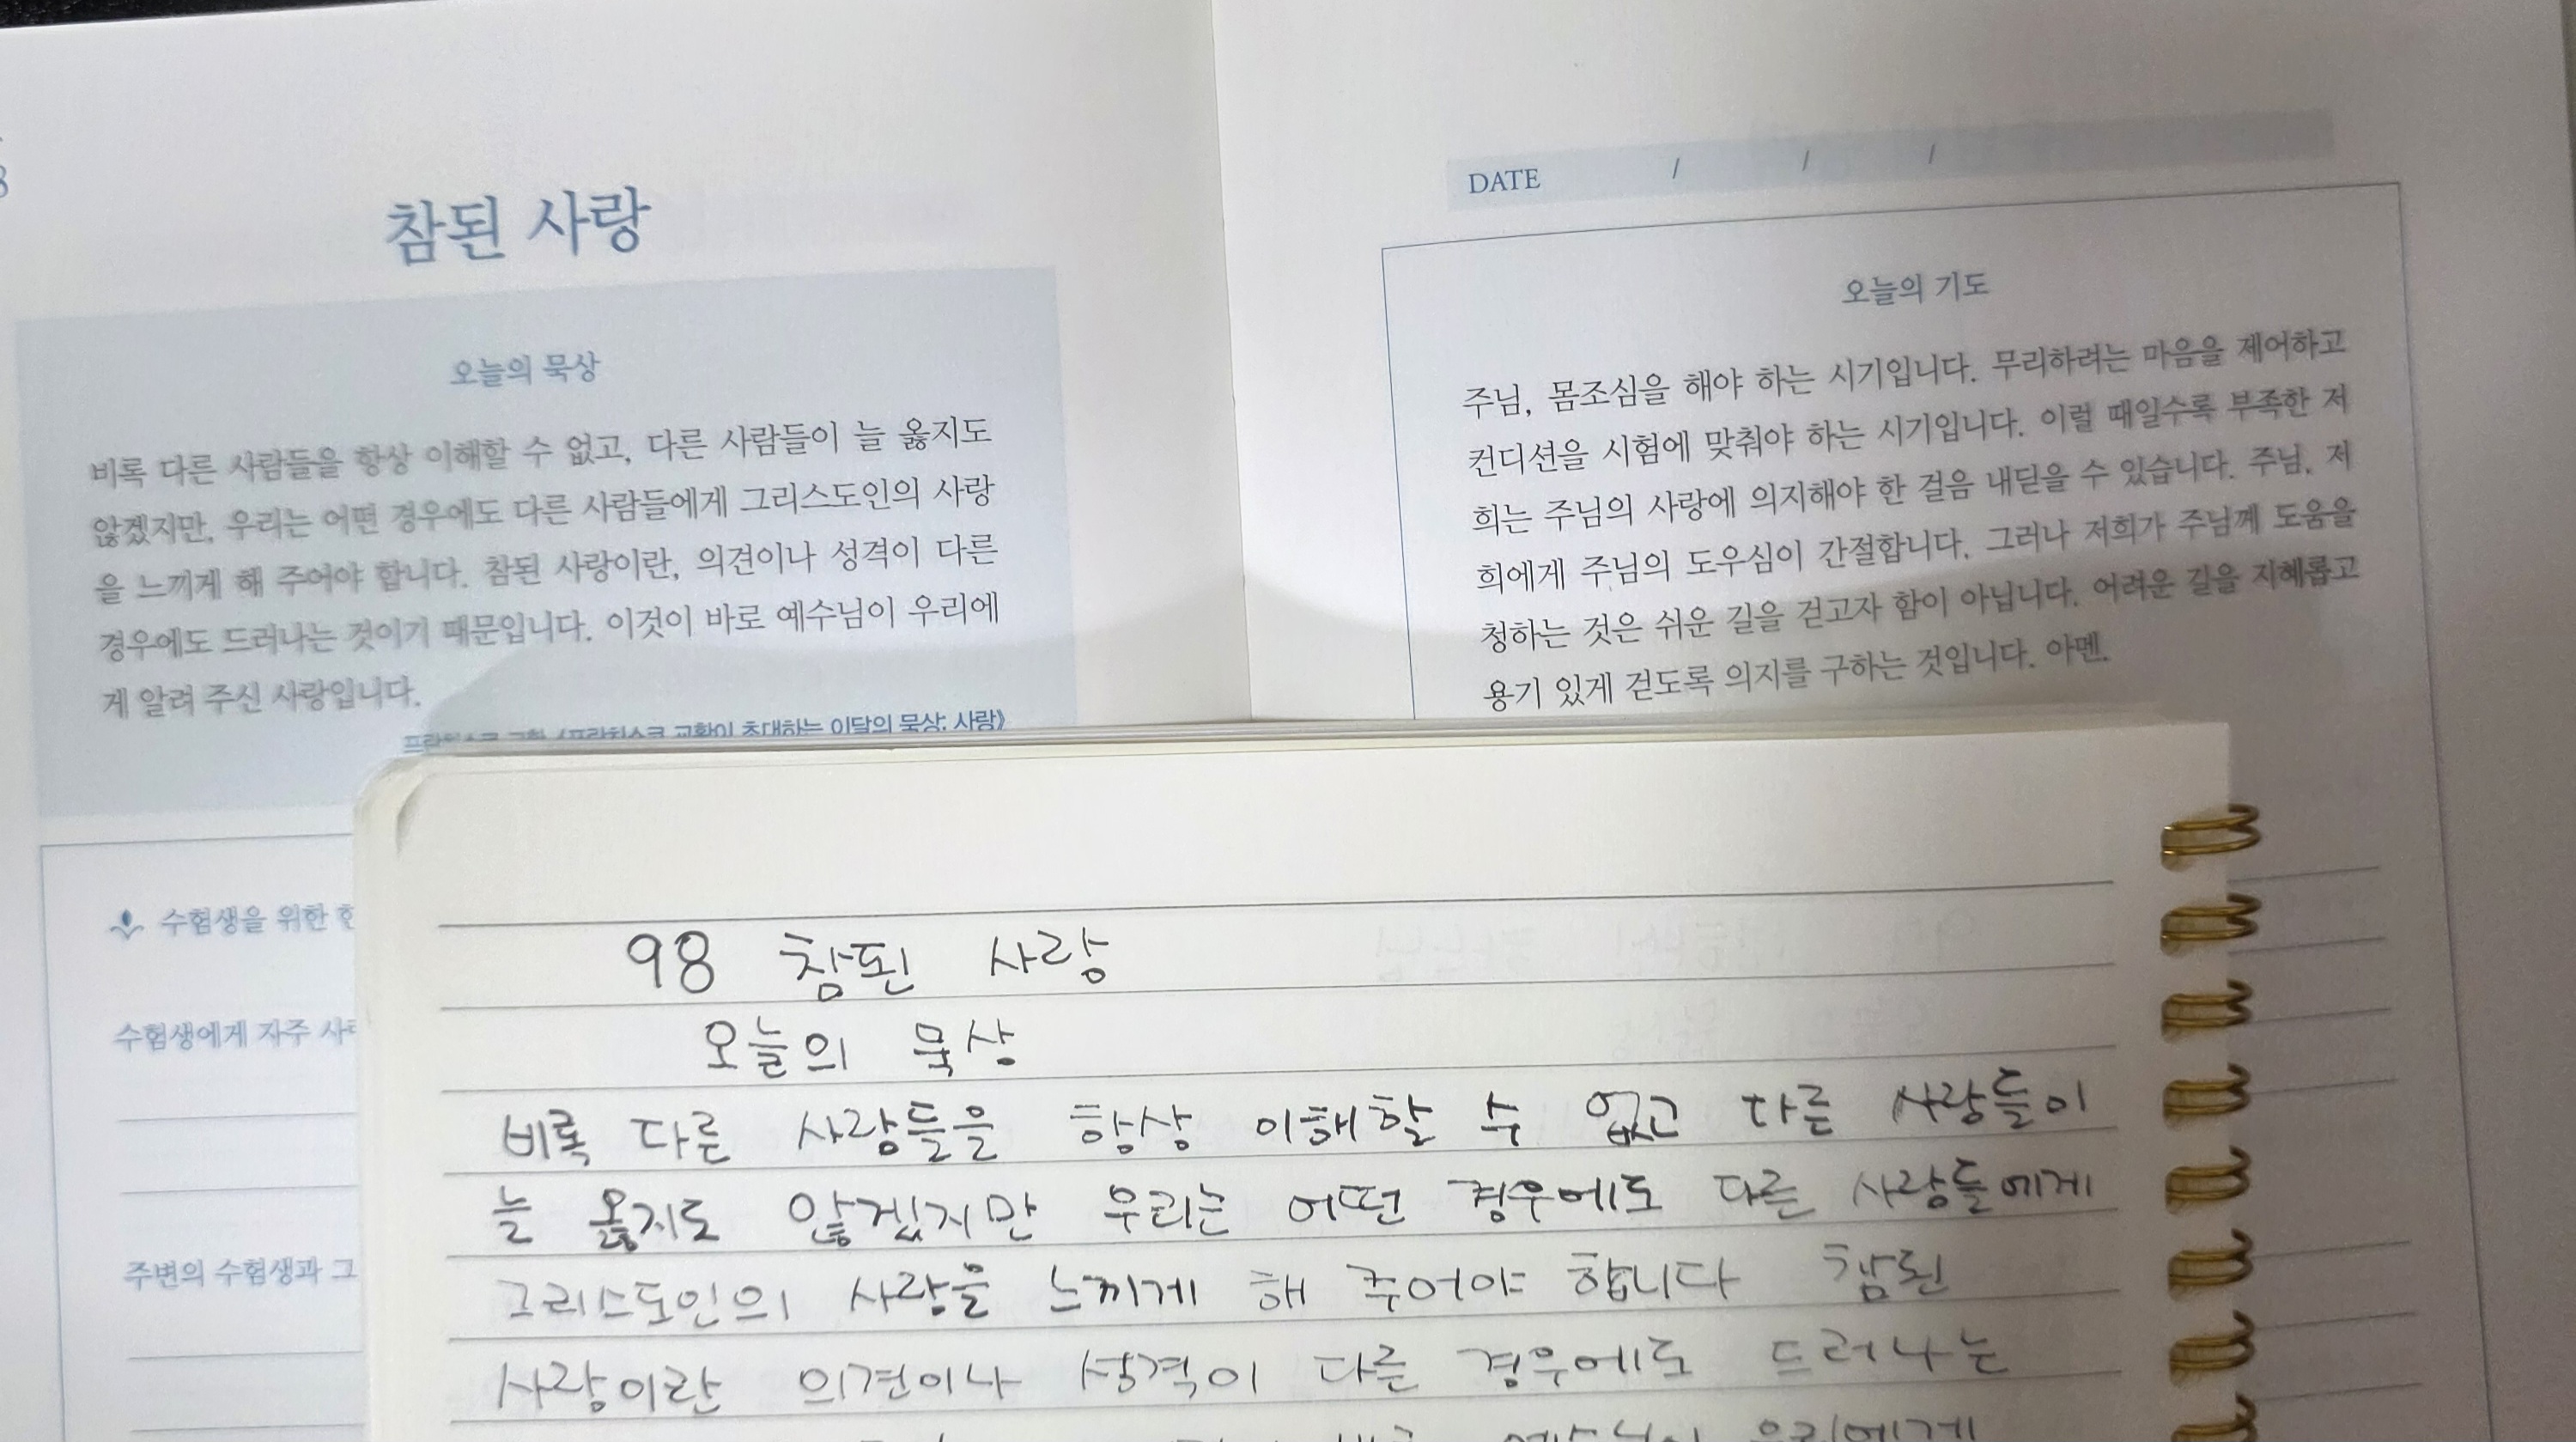 참된 사랑
오늘의 묵상
비록 다른 사람들을 항상 이해할 수 없고, 다른 사람들이 늘 옳지도
않겠지만, 우리는 어떤 경우에도 다른 사람들에게 그리스도인의 사랑
을 느끼게 해 주어야 합니다. 참된 사랑이란, 의견이나 성격이 다른
경우에도 드러나는 것이기 때문입니다. 이것이 바로 예수님이 우리에
게 알려 주신 사랑입니다.
프란치스코 교황 《프란치스코 교황이 초대하는 이달의 묵상: 사랑》
수험생을 위한
수험생에게 자주
주변의 수험생과 그
DATE / / /
오늘의 기도
주님, 몸조심을 해야 하는 시기입니다. 무리하려는 마음을 제어하고
컨디션을 시험에 맞춰야 하는 시기입니다. 이럴 때일수록 부족한 저
희는 주님의 사랑에 의지해야 한 걸음 내딛을 수 있습니다. 주님, 저
희에게 주님의 도우심이 간절합니다. 그러나 저희가 주님께 도움을
청하는 것은 쉬운 길을 걷고자 함이 아닙니다. 어려운 길을 지혜롭고
용기 있게 걷도록 의지를 구하는 것입니다. 아멘.
98 참된 사랑
오늘의 묵상
비록 다른 사람들을 항상 이해할 수 없고 다른 사람들이
늘 옳지도 않겠지만 우리는 어떤 경우에도 다른 사람들에게
그리스도인의 사랑을 느끼게 해 주어야 합니다 참된
사랑이란 의견이나 성격이 다른 경우에도 드러나는
예수님이 우리에게